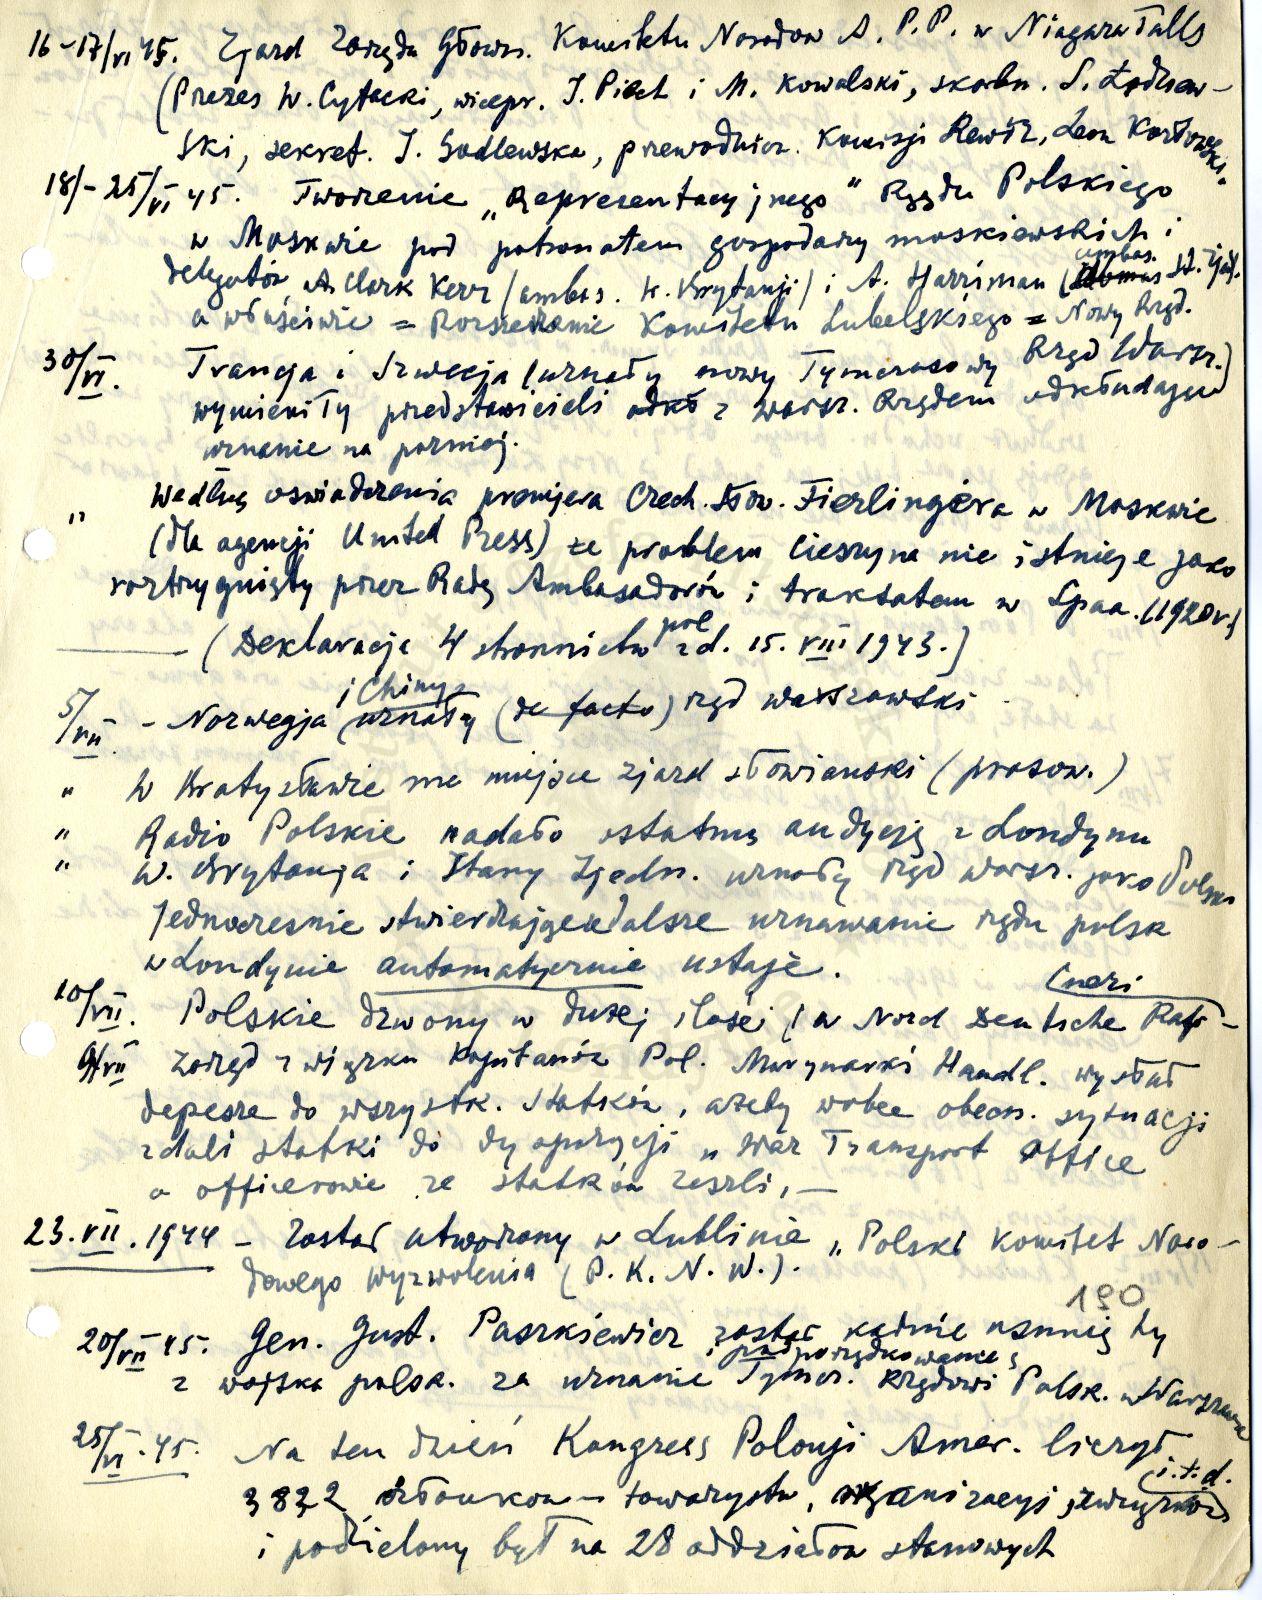 16-17/VI 45. Zjazd Zarządu Główn. Komitetu Narodow A. P. P. w Niagara Falls
(Prezes W. Cytacki, wicepr. J. Piech i M. Kowalski, skarbn. S. Łodziew-
ski, sekret. J. Godlewska, przewodnicz. Komisji Rewiz, Leon Kortowski.
18/-25/VI 45. Tworzenie „Reprezentacyjnego" Rządu Polskiego
w Moskwie pod patronatem gospodarzy moskiewskich i
delegatów A. Clark Kerr (ambas. W. Brytanji) i A. Harriman (ambas. St. Zjed.
a właściwie = Rozszerzenie Komitetu Lubelskiego = Nowy Rząd.
30/VI. Francja i Szwecja (uznały nowy Tymczasowy Rząd Warsz.)
wymieniły przedstawicieli z warsz. Rządem odkładając
uznanie na pozniej.
" Według oswiadczenia premjera Czech. Słow. Fierlingera w Moskwie
(dla agencji United Press) że problem Cieszyna nie istnieje jako
roztrzygnięty przez Radę Ambasadorów i traktatem w Spaa. (1920 r.)
(Deklaracja 4 stronnictw pol z d. 15. VIII 1943.)
5/VII - Norwegja i Chiny uznały (de facto) rząd warszawski
" W Bratysławie ma miejsce zjazd słowianski (prasow.)
" Radio Polskie nadało ostatnią audycję z Londynu
" W. Brytanja i Stany Zjedn. uznały rząd warsz. jako Polski
jednoczesnie stwierdzając że dalsze uznawanie rządu polsk
w Londynie automatycznie ustaje.
10/VII. Polskie dzwony w dużej ilości (w Nord Deutsche
9/VII Zarząd związku Kapitanów Pol. Marynarki Handl. wysłał
depesze do wszystk. statków, ażeby wobec obecn. sytuacji
zdali statki do dyspozycji „War Transport Office
a officerowie ze statków zeszli, —
23. VII. 1944 - Został utworzony w Lublinie „Polski Komitet Naro-
dowego Wyzwolenia (P. K. N. W.).
190
20/VII 45. Gen. Gust. Paszkiewicz został karnie usunięty
z wojska polsk. za uznanie i podporządkowanie s Tymcz. Rządowi Polsk. w Warszawie
25/VI. 45. Na ten dzień Kongress Polonji Amer. liczył
3822 członków - towarzystw, organizacyj, związków i.t.d.
i podzielony był na 28 oddziałow stanowych